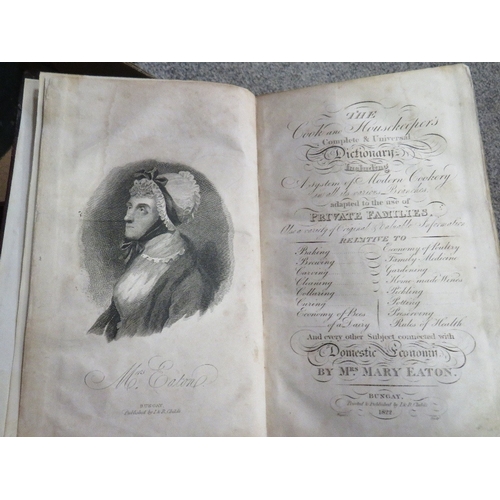 Mrs. Eaton
BUNGAY.
Published by J. & R. Childs
THE
Cook and Housekeeper's
Complete & Universal
Dictionary;
Including
A system of Modern Cookery
in all its various Branches
adapted to the use of
PRIVATE FAMILIES.
Also a variety of Original & Valuable Information
RELATIVE TO
Baking
Brewing
Carving
Cleaning
Collaring
Curing
Economy of Bees
of a Dairy
Economy of Poultry
Family Medicine
Gardening
Home made Wines
Pickling
Potting
Preserving
Rules of Health
And every other Subject connected with
Domestic Economy.
BY MRS MARY EATON.
BUNGAY,
Printed & Published by J. & R. Childs
1822